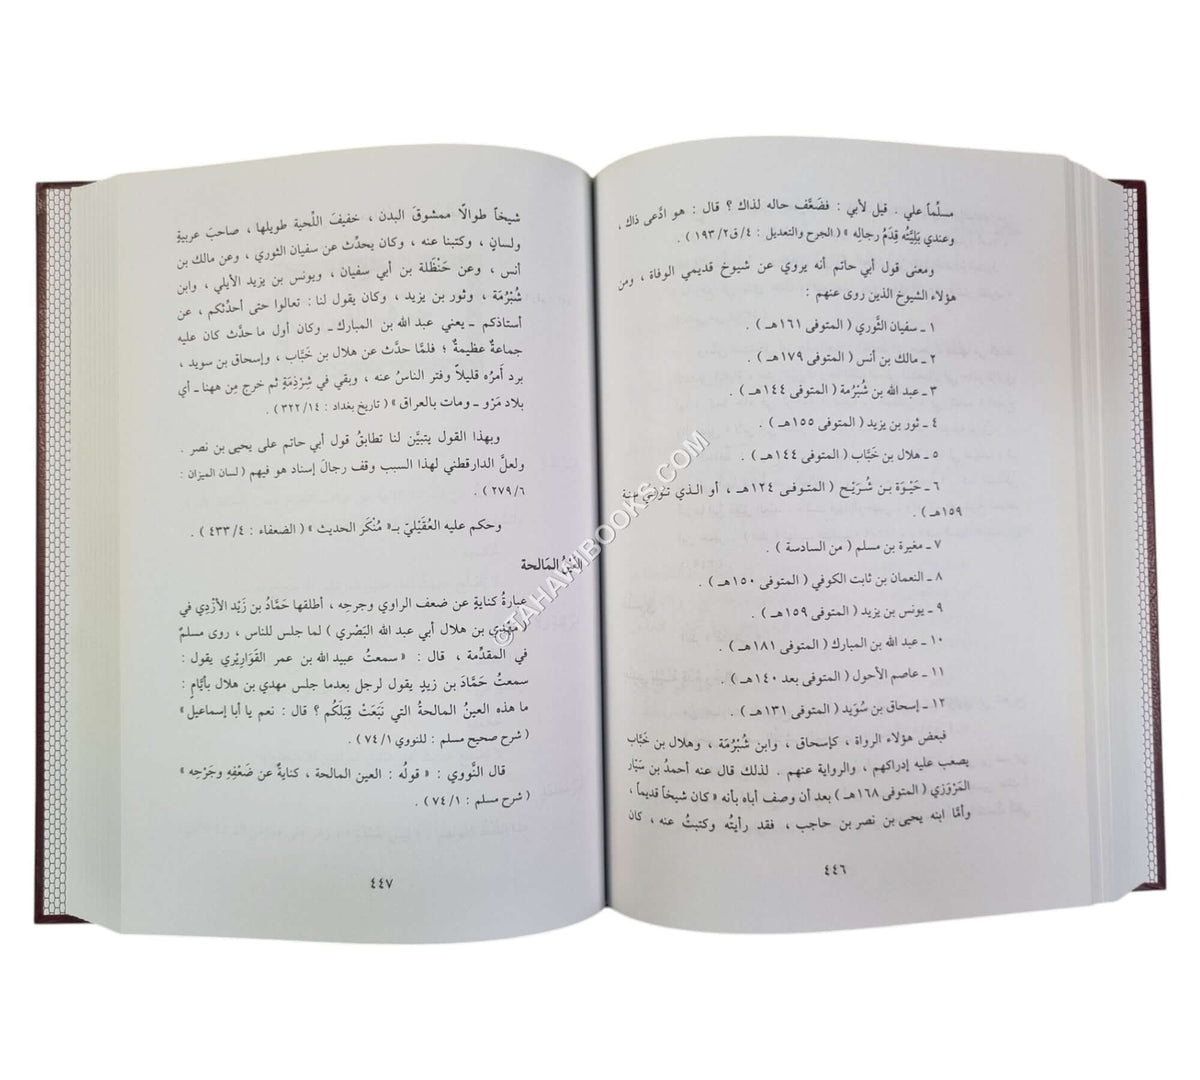 مسلِّماً علي . قيل لأبي : فضَعَّف حاله لذاك ؟ قال : هو ادَّعى ذاك ،
وعندي يَلِيَّتُه قِدَمُ رجالِه » ( الجرح والتعديل : ٤/ق٢/١٩٣ ) .
ومعنى قول أبي حاتم أنه يروي عن شيوخ قديمي الوفاة ، ومن
هؤلاء الشيوخ الذين روى عنهم :
١ ـ سفيان الثَّوري ( المتوفى ١٦١هـ ) .
٢ ـ مالك بن أنس ( المتوفى ١٧٩هـ ) .
٣ ـ عبد الله بن شُبْرُمة ( المتوفى ١٤٤هـ ) .
٤ ـ ثور بن يزيد ( المتوفى ١٥٥هـ ) .
٥ ـ هلال بن خَبَّاب ( المتوفى ١٤٤هـ ) .
٦ ـ حَيْوَة بن شُرَيْح ( المتوفى ١٢٤هـ ، أو الذي توفي سنة
١٥٩هـ ) .
٧ ـ مغيرة بن مسلم ( من السادسة ) .
٨ ـ النعمان بن ثابت الكوفي ( المتوفى ١٥٠هـ ) .
٩ ـ يونس بن يزيد ( المتوفى ١٥٩هـ ) .
١٠ ـ عبد الله بن المبارك ( المتوفى ١٨١هـ ) .
١١ ـ عاصم الأحول ( المتوفى بعد ١٤٠هـ ) .
١٢ ـ إسحاق بن سُوَيد ( المتوفى ١٣١هـ ) .
فبعض هؤلاء الرواة ، كإسحاق ، وابن شُبْرُمة ، وهلال بن خَبَّاب
يصعب عليه إدراكهم ، والرواية عنهم . لذلك قال عنه أحمدُ بن سَيّار
المَرْوَزي ( المتوفى ١٦٨هـ ) بعد أن وصف أباه بأنه « كان شيخاً قديماً ،
وأمَّا ابنه يحيى بن نصر بن حاجب ، فقد رأيتُه وكتبتُ عنه ، كان
٤٤٦
شيخاً طوالًا ممشوقَ البدن ، خفيفَ اللِّحية طويلها ، صاحبَ عربيةٍ
ولسانٍ ، وكتبنا عنه ، وكان يحدِّث عن سفيان الثوري ، وعن مالك بن
أنس ، وعن حَنْظَلة بن أبي سفيان ، ويونس بن يزيد الأيلي ، وابن
شُبْرُمَة ، وثور بن يزيد ، وكان يقول لنا : تعالوا حتى أحدِّثكم ، عن
أستاذكم ـ يعني عبد الله بن المبارك ـ وكان أول ما حدَّث كان عليه
جماعةٌ عظيمةٌ ؛ فلمَّا حدَّث عن هلال بن خَبَّاب ، وإسحاق بن سويد ،
برد أَمرُه قليلاً وفتر الناسُ عنه ، وبقي في شِرْذِمَةٍ ثم خرج مِن ههنا ـ أي
بلاد مَرْو ـ ومات بالعراق » ( تاريخ بغداد : ٣٢٢/١٤ ) .
وبهذا القول يتبيَّن لنا تطابقُ قول أبي حاتم على يحيى بن نصر .
ولعلَّ الدارقطني لهذا السبب وقف رجالَ إسناد هو فيهم ( لسان الميزان :
٢٧٩/٦ ) .
وحكم عليه العُقَيْليّ بـ« مُنْكَر الحديث » ( الضعفاء : ٤٣٣/٤ ) .
العَيْنُ المَالحة
عبارةُ كنايةٍ عن ضعف الراوي وجرحِه ، أطلقها حَمَّادُ بن زَيْد الأزْدِي في
( مهدي بن هلال أبي عبد الله البَصْري ) لما جلس للناس ، روى مسلمٌ
في المقدِّمة ، قال : « سمعتُ عبيد الله بن عمر القَوَارِيْري يقول :
سمعتُ حَمَّادَ بن زيدٍ يقول لرجل بعدما جلس مهدي بن هلال بأيَّامٍ :
ما هذه العينُ المالحةُ التي نَبَعَتْ قِبَلَكُم ؟ قال : نعم يا أبا إسماعيل »
( شرح صحيح مسلم : للنووي ٧٤/١ ) .
قال النَّووي : « قولُه : العين المالحة ، كنايةٌ عن ضَعْفِهِ وجَرْحِه »
( شرح مسلم : ٧٤/١ ) .
٤٤٧
©TAHAWIBOOKS.COM